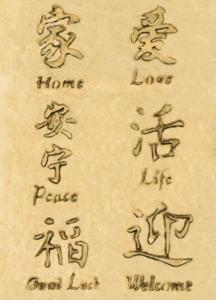 家 愛
Home Love
安 活
寧
Peace Life
福 迎
Good Luck Welcome